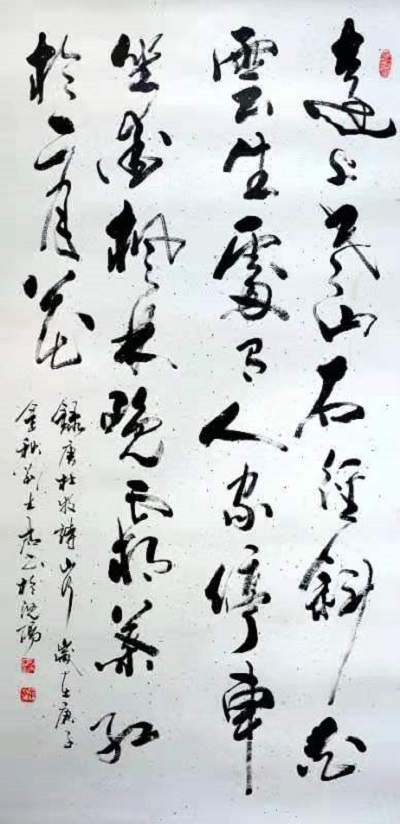 遠上寒山石徑斜白
雲生處有人家停車
坐愛楓林晚霜葉紅
於二月花
錄唐杜牧詩山行 歲在庚子
金秋士书於沈陽